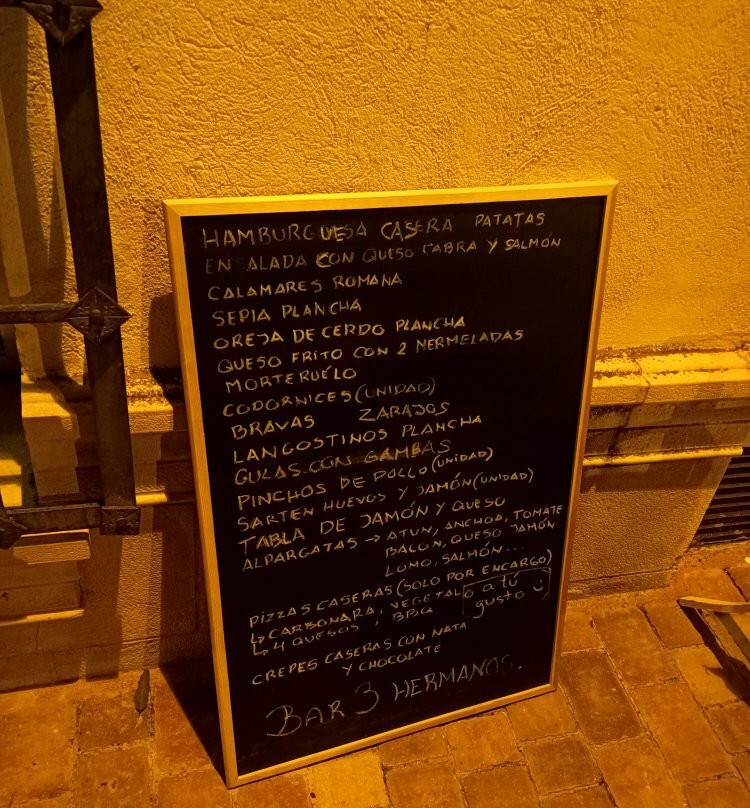 HAMBURGUESA CASERA PATATAS
ENSALADA CON QUESO CABRA Y SALMÓN
CALAMARES ROMANA
SEPIA PLANCHA
OREJA DE CERDO PLANCHA
QUESO FRITO CON 2 MERMELADAS
MORTERUELO
CODORNICES (UNIDAD)
BRAVAS ZARAJOS
LANGOSTINOS PLANCHA
GULAS CON GAMBAS
PINCHOS DE POLLO (UNIDAD)
SARTEN HUEVOS Y JAMÓN (UNIDAD)
TABLA DE JAMÓN Y QUESO
ALPARGATAS → ATUN, ANCHOA, TOMATE
BACON, QUESO JAMÓN
LOMO, SALMÓN...
PIZZAS CASERAS (SOLO POR ENCARGO)
↳ CARBONARA, VEGETAL o a tú
↳ 4 QUESOS, BBQ gusto :)
CREPES CASERAS CON NATA
Y CHOCOLATE
BAR 3 HERMANOS.